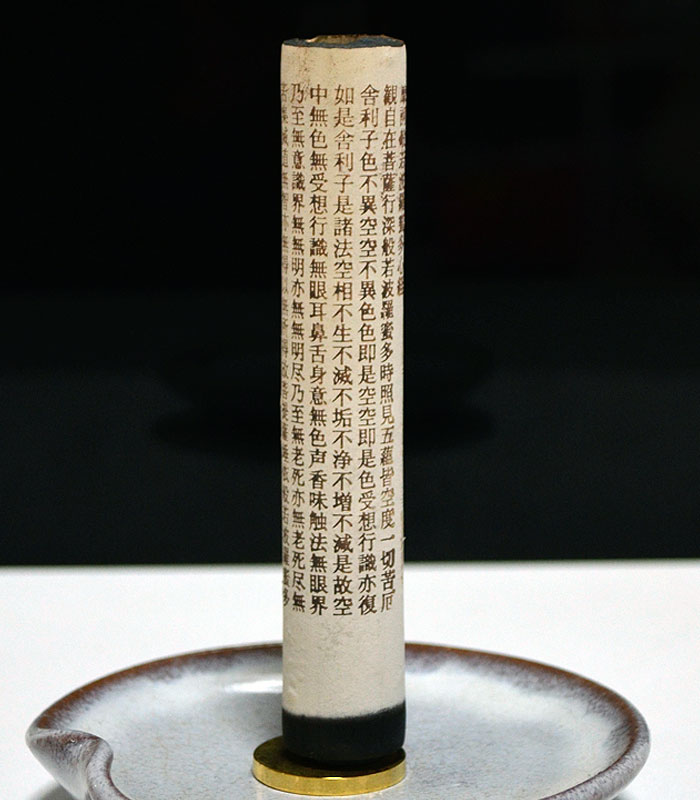 多心経
観自在菩薩行深般若波羅蜜多時照見五蘊皆空度一切苦厄
舎利子色不異空空不異色色即是空空即是色受想行識亦復
如是舎利子是諸法空相不生不滅不垢不浄不増不減是故空
中無色無受想行識無眼耳鼻舌身意無色声香味触法無眼界
乃至無意識界無無明亦無無明尽乃至無老死亦無老死尽無